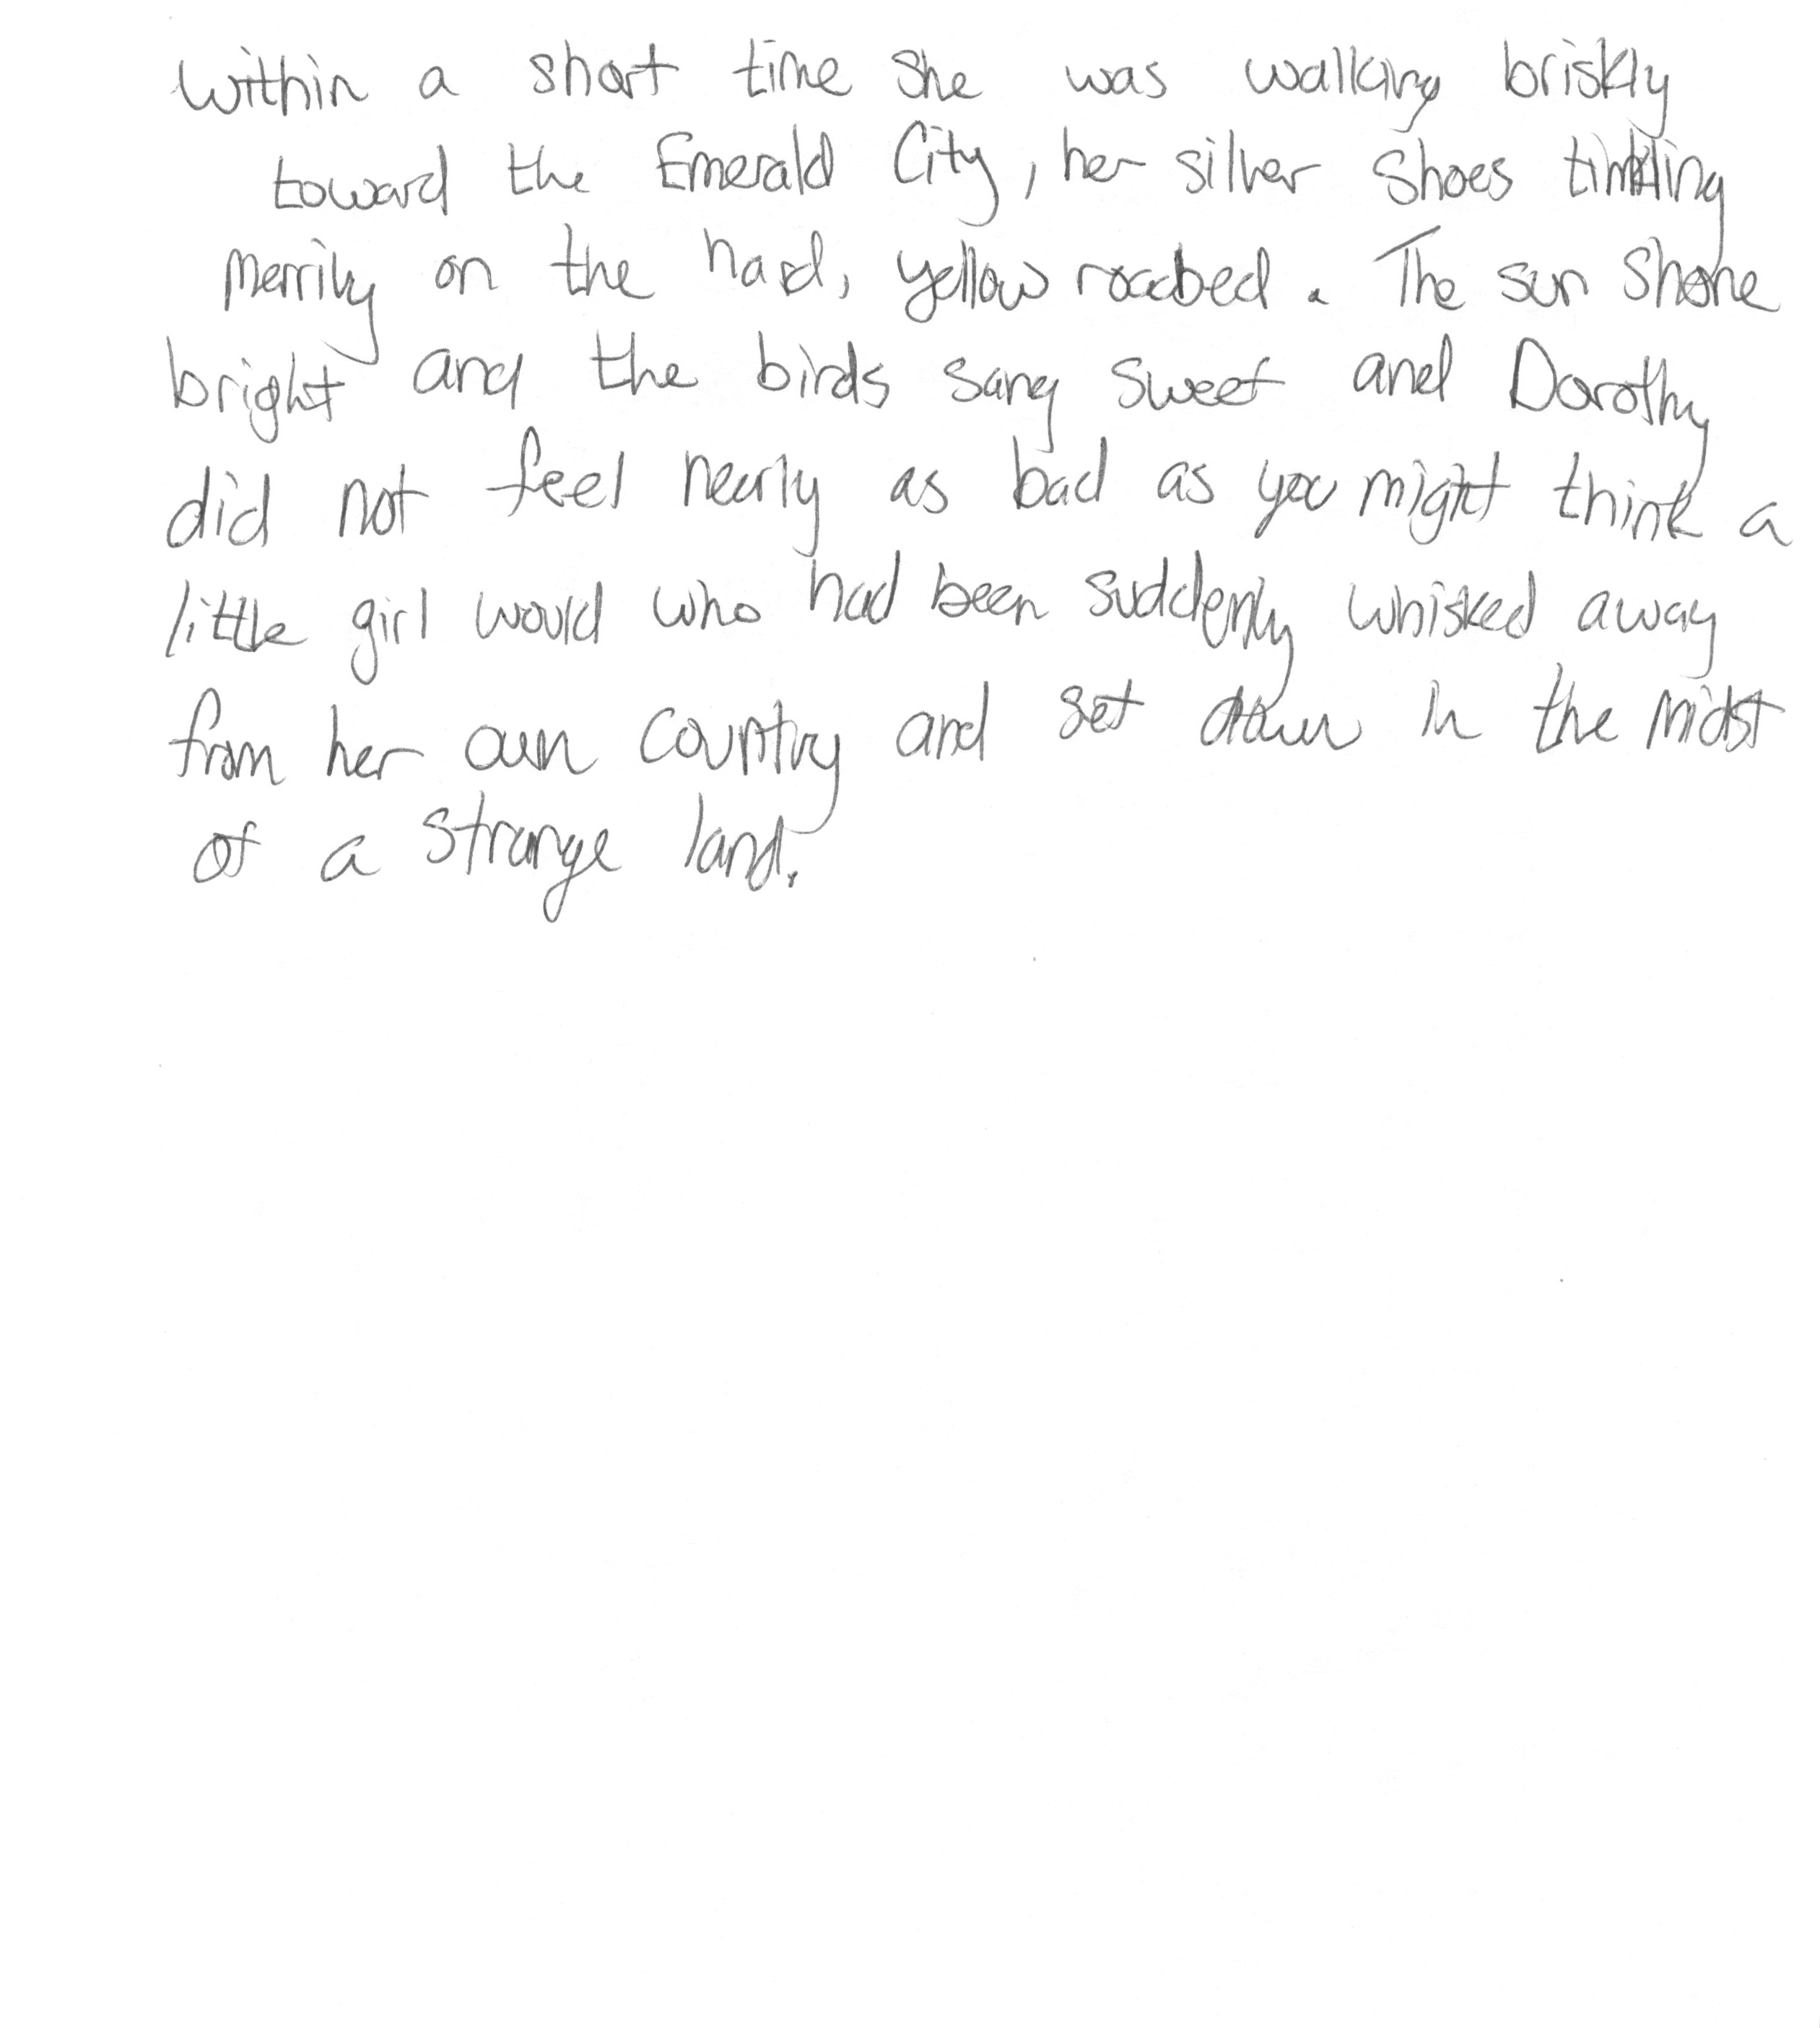 Within a short time she was walking briskly
toward the Emerald City, her silver shoes tinkling
merrily on the hard, yellow roadbed. The sun shone
bright and the birds sang sweet and Dorothy
did not feel nearly as bad as you might think a
little girl would who had been suddenly whisked away
from her own country and set down in the midst
of a strange land.